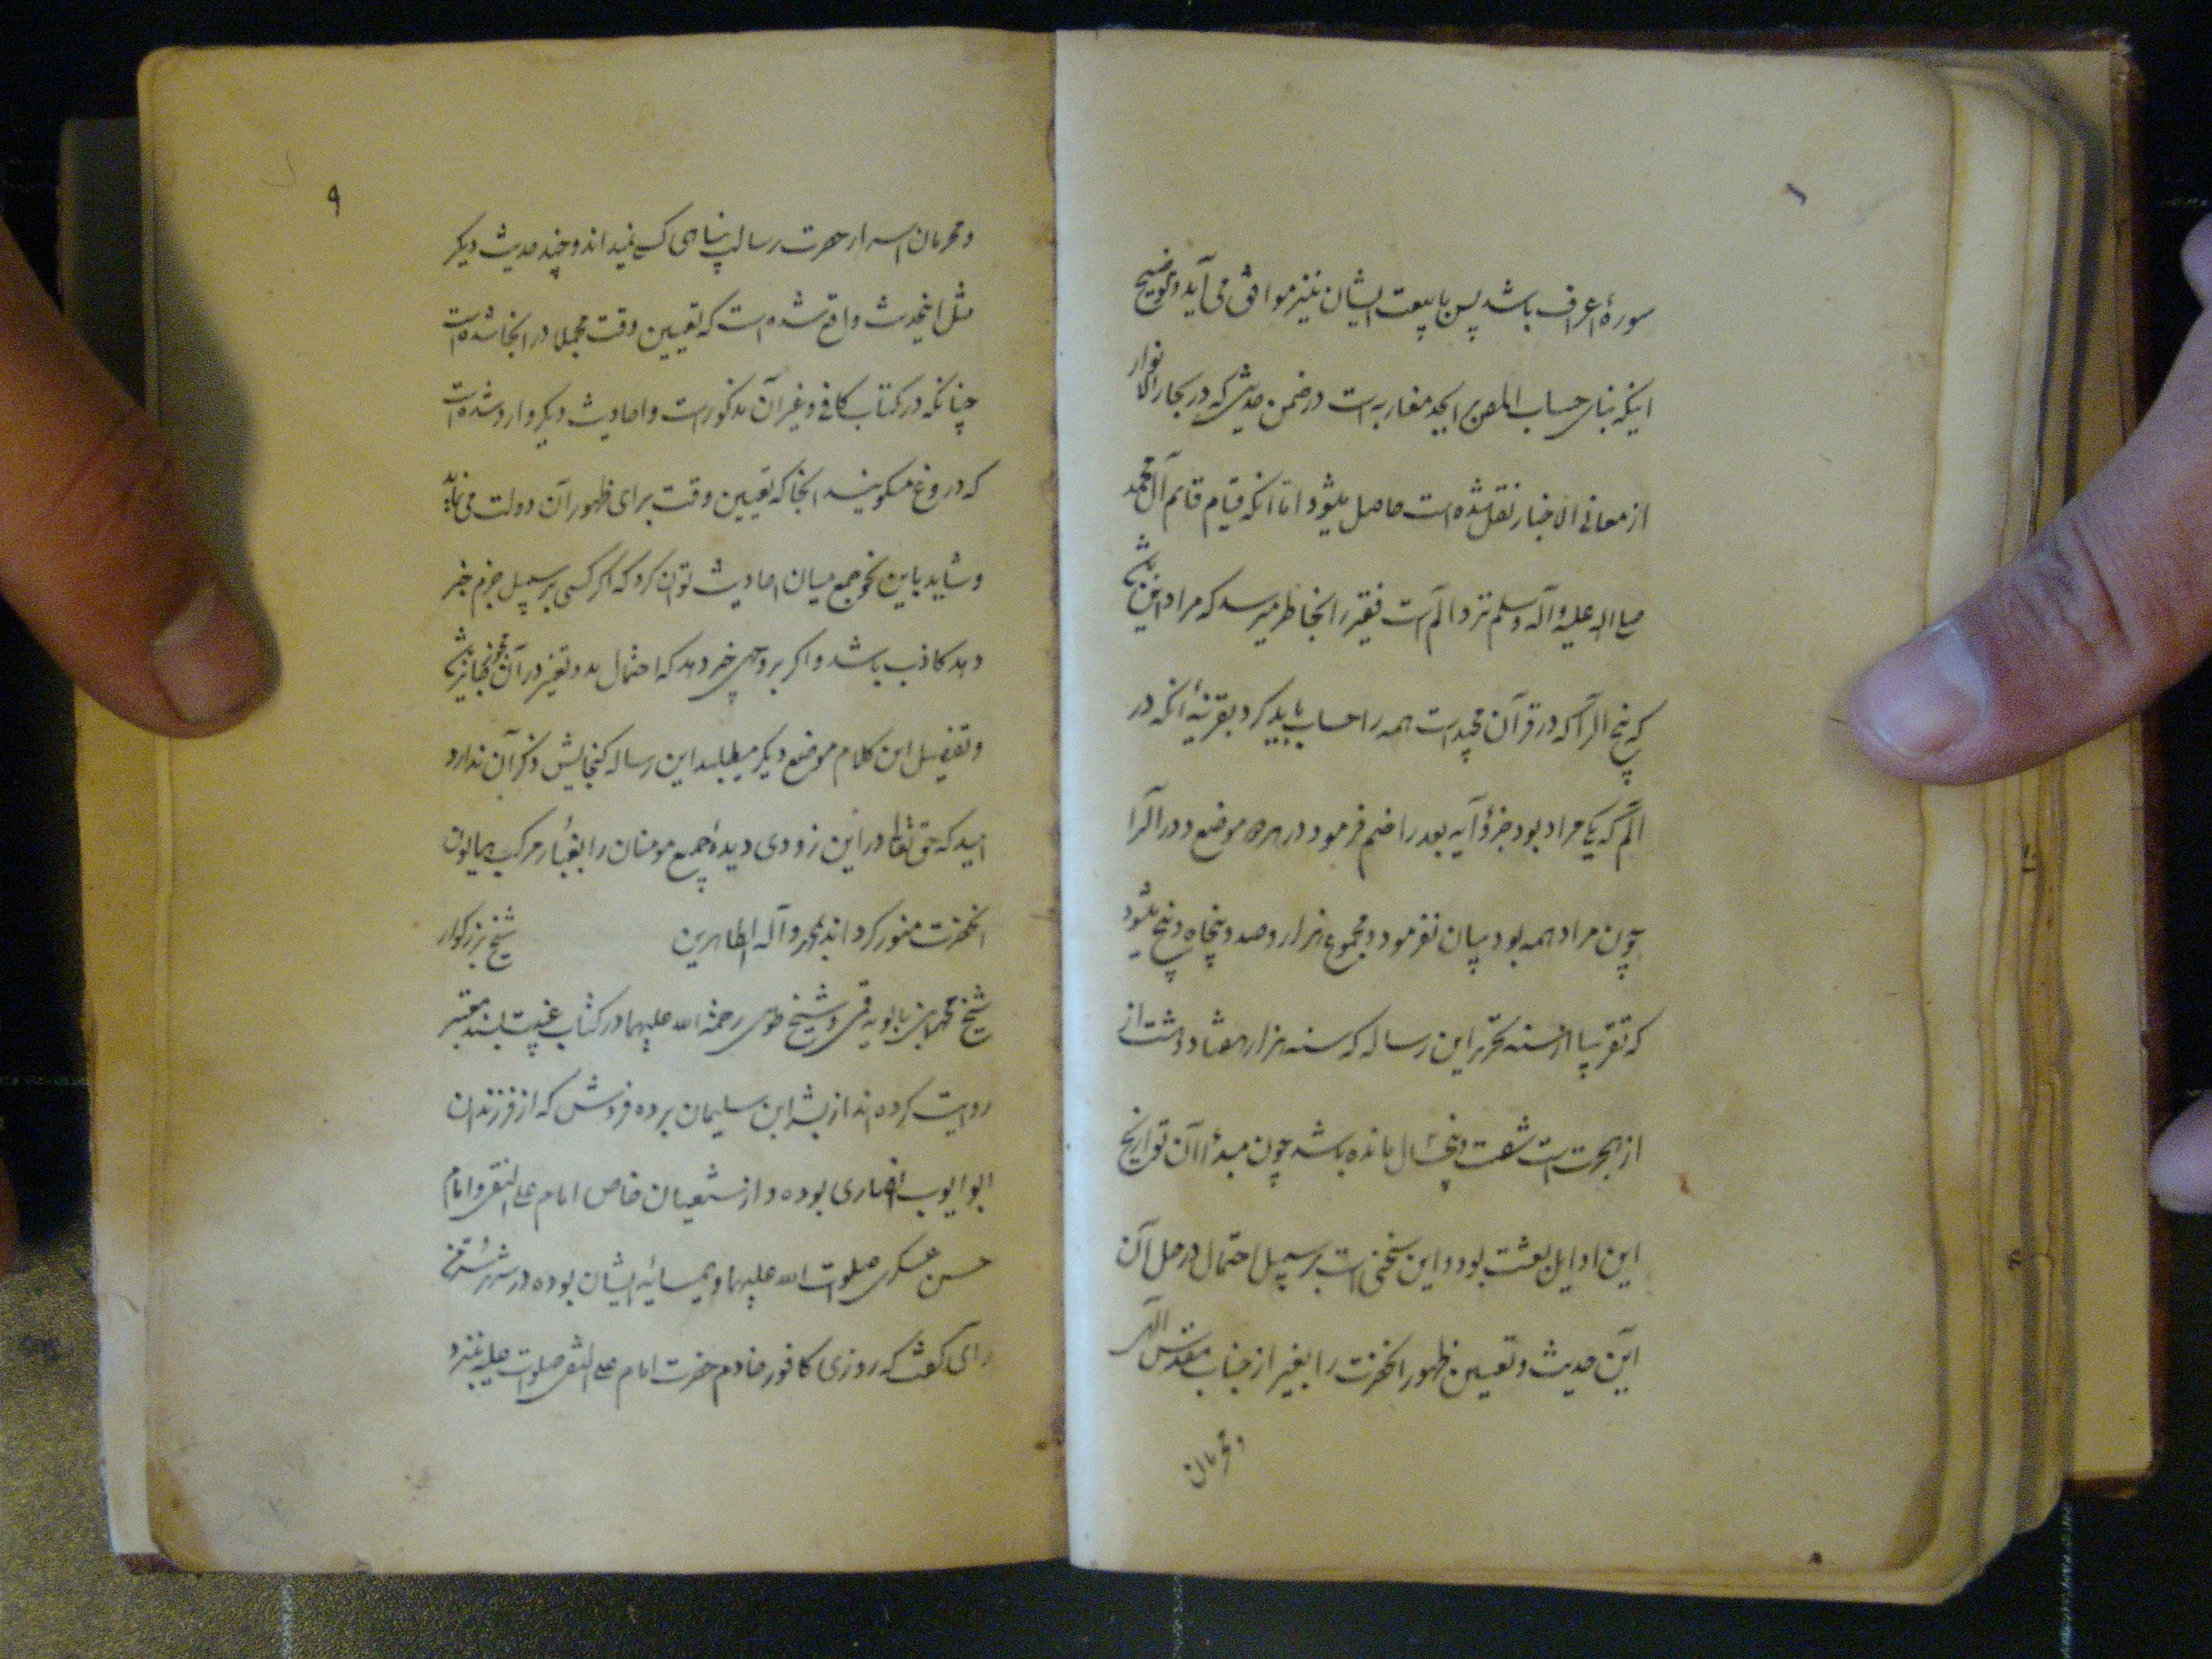 سورهٔ اعراف باشد پس با بیعت ایشان نیز موافق می آید و توضیح
اینکه بنای حساب المص بر ابجد مغاربه است در ضمن حدیثی که در بحار الانوار
از معانی الاخبار نقل شده است حاصل میشود اما آنکه قیام قائم آل محمد
صلی الله علیه و آله وسلم نزد الر است فقیر را بخاطر میرسد که مراد این باشد
که پنج الر آ که در قرآن مجید است همه را حساب باید کرد بقرینهٔ آنکه در
الم که یکی مراد بود جزؤ آیه بعد را ضم فرمود در هر موضع و در الرا
چون مراد همه بود بیان نفرمود و مجموع هزار و صد و پنجاه و پنج میشود
که تقریبا از سنه تحریر این رساله که سنه هزار و هفتاد و هشت از
از هجرت است شصت و پنجسال مانده باشد چون مبدأ آن تواریخ
این اوایل بعثت بود و این سخنی است بر سبیل احتمال در حل آن
این حدیث و تعیین ظهور انحضرت را بغیر از جناب مقدس الهی
و محرمان
۹
و محرمان اسرار حضرت رسالت پناهی کسی نمیداند و چند حدیث دیگر
مثل اینحدیث واقع شده است که تعیین وقت مجملا در آنجا شده است
چنانکه در کتاب کافی و غیر آن مذکور است و احادیث دیگر وارد شده است
که دروغ میگویند آنها که تعیین وقت برای ظهور آن دولت می نمایند
و شاید باین نحو جمع میان احادیث توان کرد که اگر کسی بر سبیل جزم خبر
دهد کاذب باشد و اگر بروجهی خبر دهد که احتمال بدو تغیر در آن جایز باشد
و تفصیل این کلام موضع دیگر میطلبد این رساله گنجایش ذکر آن ندارد
امید که حق تعالی در این زودی دیدهٔ جمیع مومنان را بغبار مرکب همایون
انحضرت منور گرداند بمحمد و آله الطاهرین شیخ بزرگوار
شیخ محمد ابن بابویه قمی و شیخ طوسی رحمة الله علیهما در کتاب غیبت بسند معتبر
روایت کرده اند از بشر ابن سلیمان برده فروش که از فرزندان
ابو ایوب انصاری بوده و از شیعیان خاص امام علی النقی و امام
حسن عسکری صلوات الله علیهما و همسایه ایشان بوده در شهر سر من
رای گفت که روزی کافور خادم حضرت امام علی النقی صلوات علیه بنزد